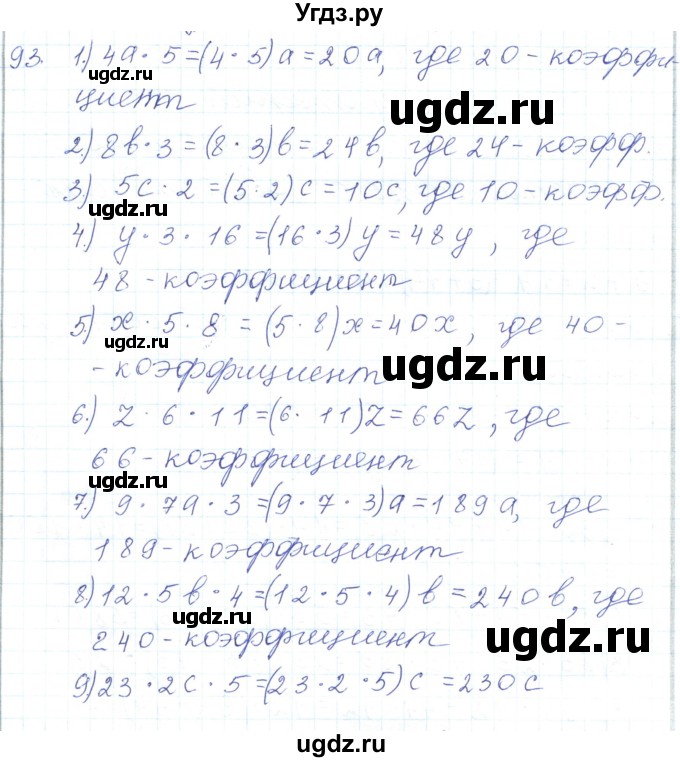 Угдз.ру
93. 1.) 4а · 5 = (4 · 5) а = 20а, где 20 - коэффи-
циент
ugdz.ru ugdz.ru
2.) 8b · 3 = (8 · 3)b = 24b, где 24 - коэфф.
3.) 5с · 2 = (5 · 2) с = 10с, где 10 - коэфф.
ugdz.ru
4.) у · 3 · 16 = (16 · 3) у = 48у, где
48 - коэффициент
5.) х · 5 · 8 = (5 · 8)х = 40х, где 40 -
ugdz.ru
- коэффициент
ugdz.ru
6.) z · 6 · 11 = (6 · 11)z = 66z, где
66 - коэффициент
ugdz.ru
7.) 9 · 7а · 3 = (9 · 7 · 3)а = 189а, где
189 - коэффициент
8.) 12 · 5b · 4 = (12 · 5 · 4) b = 240b, где
ugdz.ru
240 - коэффициент
ugdz.ru
9) 23 · 2с · 5 = (23 · 2 · 5) с = 230с
ugdz.ru